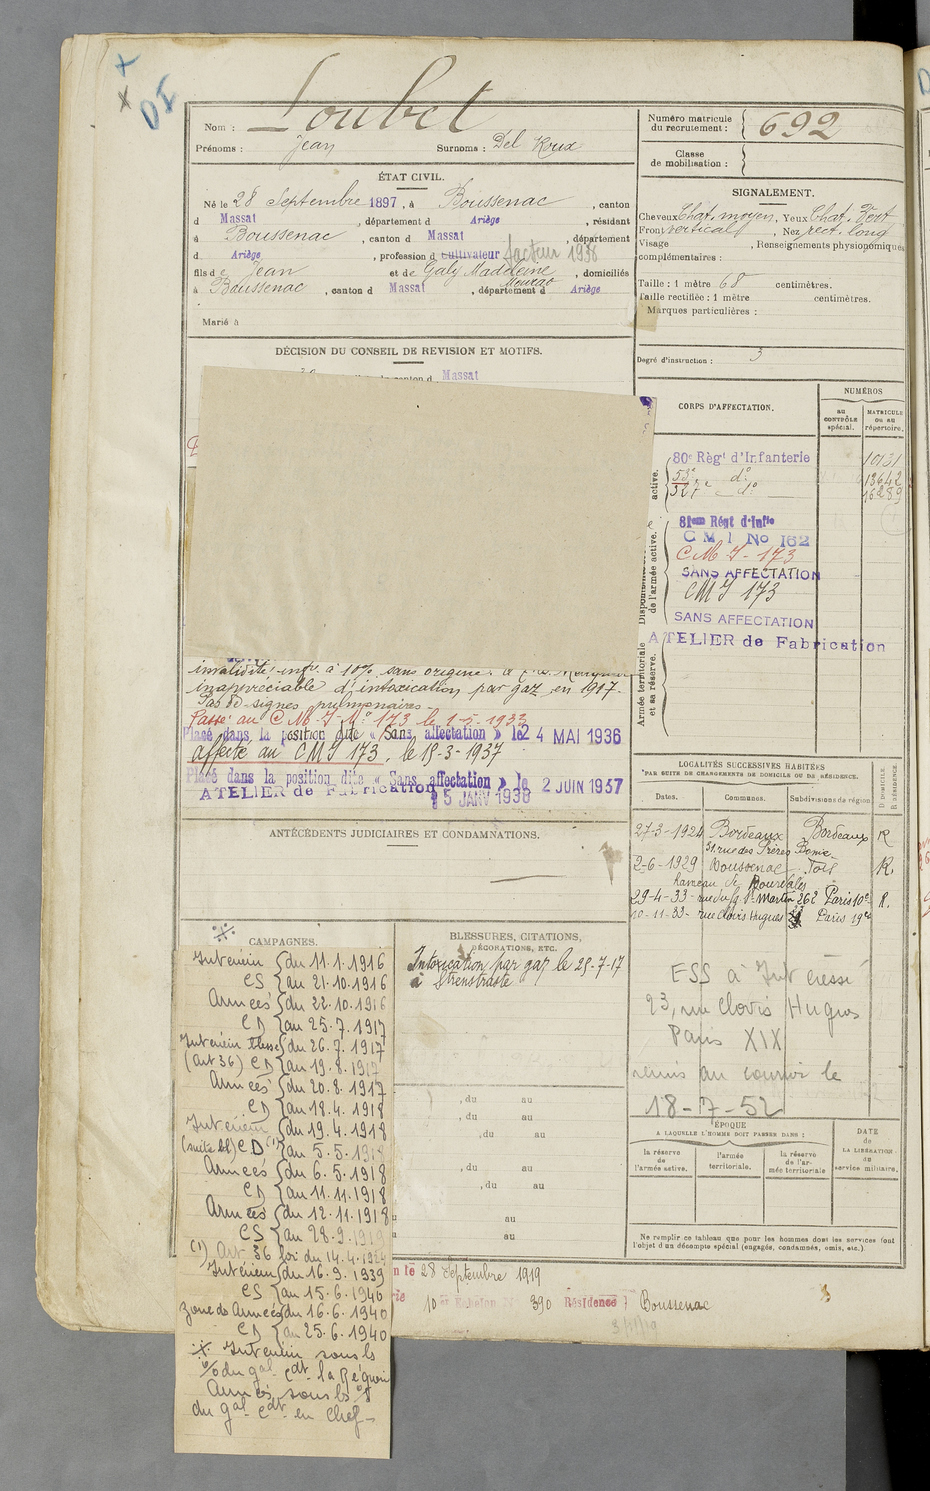 Nom : Loubet
Prénoms : Jean Surnoms : Del Roux
ÉTAT CIVIL.
Né le 28 Septembre 1897, à Boussenac, canton
d Massat, département d Ariège, résidant
à Boussenac, canton d Massat, département
d Ariège, profession d cultivateur facteur 1938
fils de Jean et de Galy Maddeine, domiciliés
à Boussenac, canton d Massat, département d Ariège
Marié à
DÉCISION DU CONSEIL DE REVISION ET MOTIFS.
canton d Massat
invalidité inf. à 10% sans origine.
inappréciable d'intoxication par gaz en 1917.
Pas de signes pulmonaires.
Passé au C M I N° 173 le 1-5-1933
Placé dans la position dite « Sans affectation » le 24 MAI 1936
affecté au C M I 173, le 15-3-1937
Placé dans la position dite « Sans affectation » le 2 JUIN 1937
ATELIER de Fabrication 5 JANV 1938
ANTÉCÉDENTS JUDICIAIRES ET CONDAMNATIONS.
CAMPAGNES.
Intérieur { du 11.1.1916
CS { au 21.10.1916
Armées { du 22.10.1916
CD { au 25.7.1917
Intérieur blessé { du 26.7.1917
(art 36) CD { au 19.8.1917
Armées { du 20.8.1917
CD { au 18.4.1918
Intérieur { du 19.4.1918
(suite bl) CD (1) { au 5.5.1918
Armées { du 6.5.1918
CD { au 11.11.1918
Armées { du 12.11.1918
CS { au 28.9.1919
(1) Art 36 loi du 14.4.1924
Intérieur { du 16.9.1939
CS { au 15.6.1940
Zone des Armées { du 16.6.1940
CD { au 25.6.1940
Intérieur sous ls
% du gal cdt la Région
Armées sous ls %
du gal cdt en Chef
BLESSURES, CITATIONS,
DÉCORATIONS, ETC.
Intoxication par gaz le 25-7-17
à Strenstraste
, du au
, du au
, du au
, du au
, du au
au
au
n le 28 Septembre 1919
10 Echelon N° 390 Résidence : Boussenac
Numéro matricule
du recrutement : 692
Classe
de mobilisation :
SIGNALEMENT.
Cheveux Chat. moyen, Yeux Chat. Vert
Front vertical, Nez rect. long
Visage , Renseignements physionomiques
complémentaires :
Taille : 1 mètre 68 centimètres.
Taille rectifiée : 1 mètre centimètres.
Marques particulières :
Degré d'instruction : 3
CORPS D'AFFECTATION.
NUMÉROS
AU CONTRÔLE spécial.
MATRICULE OU AU répertoire.
active.
80e Régt d'Infanterie 10131
53e d° 13642
327e d° 16289
Disponibilité
de l'armée active.
81eme Régt d'Infie
C M I No 162
C M I - 173
SANS AFFECTATION
CMI 173
SANS AFFECTATION
ATELIER de Fabrication
Armée territoriale
et sa réserve.
LOCALITÉS SUCCESSIVES HABITÉES
PAR SUITE DE CHANGEMENTS DE DOMICILE OU DE RÉSIDENCE.
Dates. Communes. Subdivisions de région. D DOMICILE. R RÉSIDENCE.
27-3-1924 Bordeaux Bordeaux R
31 rue des Frères Bonie
2-6-1929 Boussenac Foix R.
hameau de
29-4-33 - rue du fg St Martin 262 Paris 10e R.
10-11-33 - rue Clovis Hugues 23 Paris 19e
ESS à Intéressé
93, rue Clovis Hugues
Paris XIX
remis au courrier le
18-7-52
ÉPOQUE
A LAQUELLE L'HOMME DOIT PASSER DANS :
la réserve de l'armée active.
l'armée territoriale.
la réserve de l'armée territoriale
DATE de LA LIBÉRATION du service militaire.
Ne remplir ce tableau que pour les hommes dont les services font
l'objet d'un décompte spécial (engagés, condamnés, omis, etc.)